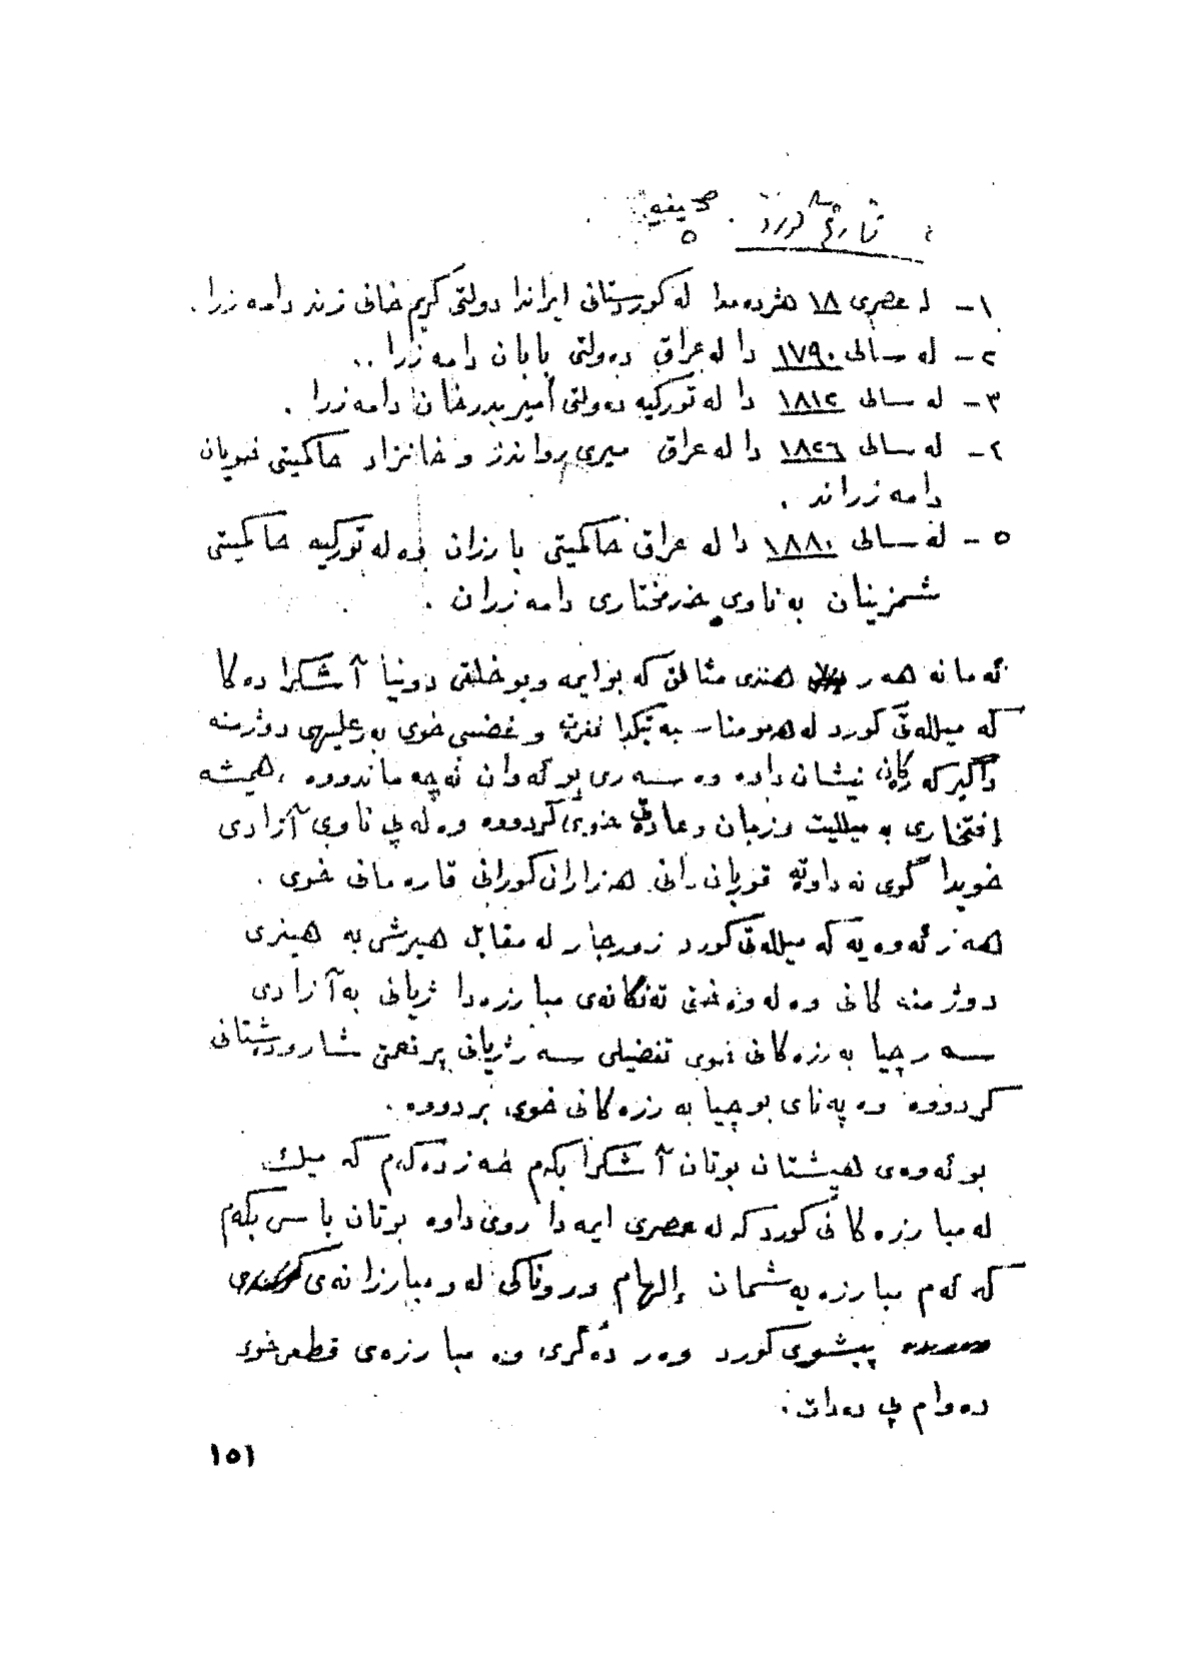 تاریخ کورد . صحیفه
٥
١- لە عصری ١٨ هژدەمدا لە کوردستانی ایراندا دولتی کریم خانی زند دامە زرا .
٢- لە سالی ١٧٩٠ دا لە عراق دەولتی بابان دامە زرا ..
٣- لە سالی ١٨١٢ دا لە تورکیە دەولتی أمیر بدرخان دامە زرا .
٤- لە سالی ١٨٢٦ دا لە عراق میری رواندز و خانزاد حاکمیتی خویان
دامە زراند .
٥- لە سالی ١٨٨٠ دا لە عراق حاکمیتی بارزان وە لە تورکیە حاکمیتی
شمزینان بە ناوی خودمختاری دامە زران .
ئەمانە هەر هندی مثالن کە بو ایمە و بو خلقی دونیا آشکرا دەکا
کە میللەتی کورد لە هەمو مناسبەتیکدا نفرت و غضبی خوی بە رعلیهی دوژمنە
داگیرکەرکانی نیشان داوە وە سەری بو ئەوان نەچەماندووە ، همیشە
إفتخاری بە میللیت و زمان و عادتی خوی کردووە وە لە پی ناوی آزادی
خویدا گوی نە داوتە قوربان دانی هەزاران کورانی قارەمانی خوی .
هەر ئەوەیە کە میللەتی کورد زورجار لە مقابل هیرشی بە هیزی
دوژمنە کانی وە لە وەختی تەنگانەی مبارزەدا ژیانی بە آزادی
سەر چیا بەرزەکانی خوی تفضیلی سەر ژیانی پر نعمتی شار و دەشتانی
کردووە وە پەنای بو چیا بە رزەکانی خوی بردووە .
بو ئەوەی هیشتان بوتان آشکرا بکەم حەز دەکەم کە میک
لە مبارزەکانی کورد کە لە عصری ایمە دا رویی داوە بوتان باس بکەم
کە ئەم مبارزەیەشمان إلهام و روناکی لەو مبارزانەی
پیشوی کورد وەر دەگری وە مبارزەی قطعی خوی
دەوام پی دەدات .
١٥١